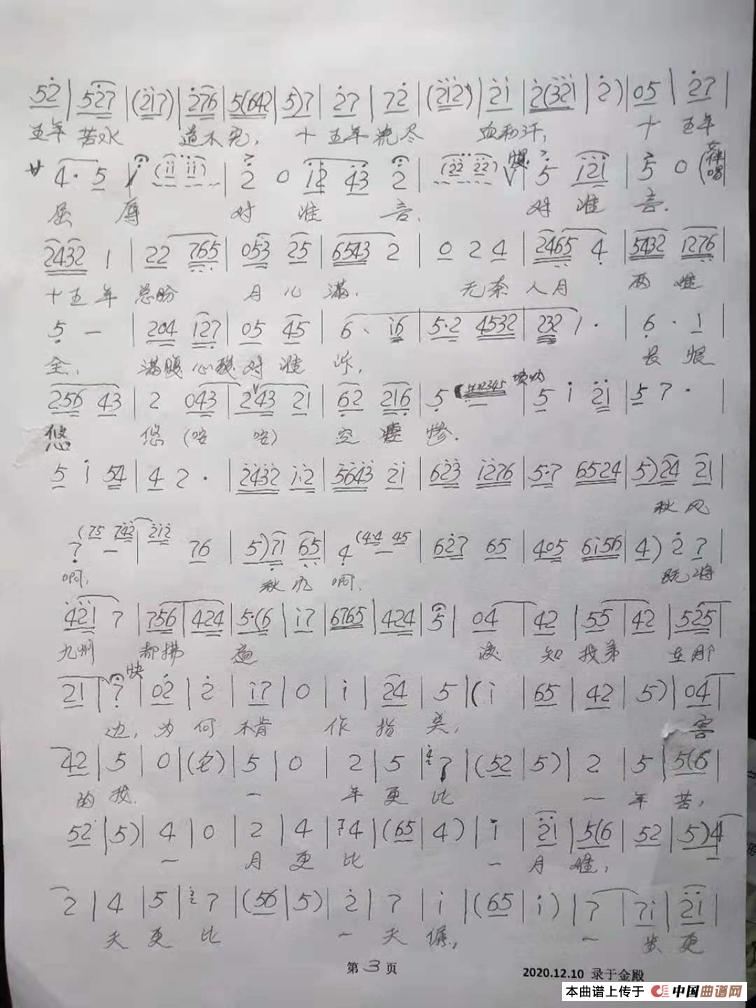 5 2 | 5 2 7 | (2 1 7) | 2 7 6 | 5 (6 4 2 | 5) 7 | 2 7 | 7 2 | (2 1 2) | 2 1 | 2 (3 2 1 | 2) | 0 5 | 2 7 |
五年 苦水 道不完, 十 五年 流尽 血和汗, 十 五年
サ 4· 5 (1 1 1 1) 2 0 1 2 4 3 2 (2 2 2 2) 慢 5 1 2 1 5 0
屈 辱 对 谁 言, 对 谁 言.
2 4 3 2 1 | 2 2 7 6 5 | 0 5 3 2 5 | 6 5 4 3 2 | 0 2 4 | 2 4 6 5 4 | 5 4 3 2 1 2 7 6 |
十五年 总盼 月儿 满, 无奈 人月 两难
5 — | 2 0 4 1 2 7 | 0 5 4 5 | 6· 1 6 | 5· 2 4 5 3 2 | 2 3 2 1· | 6· 1 |
全, 满腹心 对谁 诉, 长恨
2 5 6 4 3 | 2 0 4 3 | 2 4 3 2 1 | 6 2 2 1 6 | 5 — | 5 1 2 1 | 5 7· |
悠 悠(咯 咯) 空 惨.
5 1 5 4 | 4 2· | 2 4 3 2 1· 2 | 5 6 4 3 2 1 | 6 2 3 1 2 7 6 | 5· 7 6 5 2 4 | 5) 2 4 2 1 |
秋风
7 — (7 5 7 4 2 | 2 1 2 7 6 | 5) 7 1 6 5 | 4 — (4 4 4 5 | 6 2 7 6 5 | 4 0 5 6 1 5 6 | 4) 2 7 |
啊, 秋风 啊, 既将
4 2 1 7 | 7 5 6 4 2 4 | 5· (6 | 1 7 | 6 7 6 5 | 4 2 4 | 5) | 0 4 | 4 2 | 5 5 | 4 2 | 5 2 5 |
九州 都拂 遍 该 知 我弟 在那
2 1 | 7 | 快 0 2 | 2 | 1 7 | 0 | 1 | 2 4 | 5 | (1 | 6 5 | 4 2 | 5) | 0 4 |
边, 为 何 不肯 作 指 点, 害
4 2 | 5 | 0 | | 5 | 0 | 2 | 5 | 7 | (5 2 | 5) | 2 | 5 | 5 (6 |
的我 一 年更比 一 年苦,
5 2 | 5) | 4 | 0 | 2 | 4 | 4 | (6 5 | 4) | 1 | 2 1 | 5 (6 | 5 2 | 5) 4 |
一 月 更 比 一 月 难,
2 | 4 | 5 | 7 | (5 6 | 5) | 2 | 7 | 1 | (6 5 | 1) | 7 | 7 1 | 2 1 |
天 更 比 一 天 一 岁 更
第 3 页
2020.12.10 录于金殿
本曲谱上传于 中国曲谱网